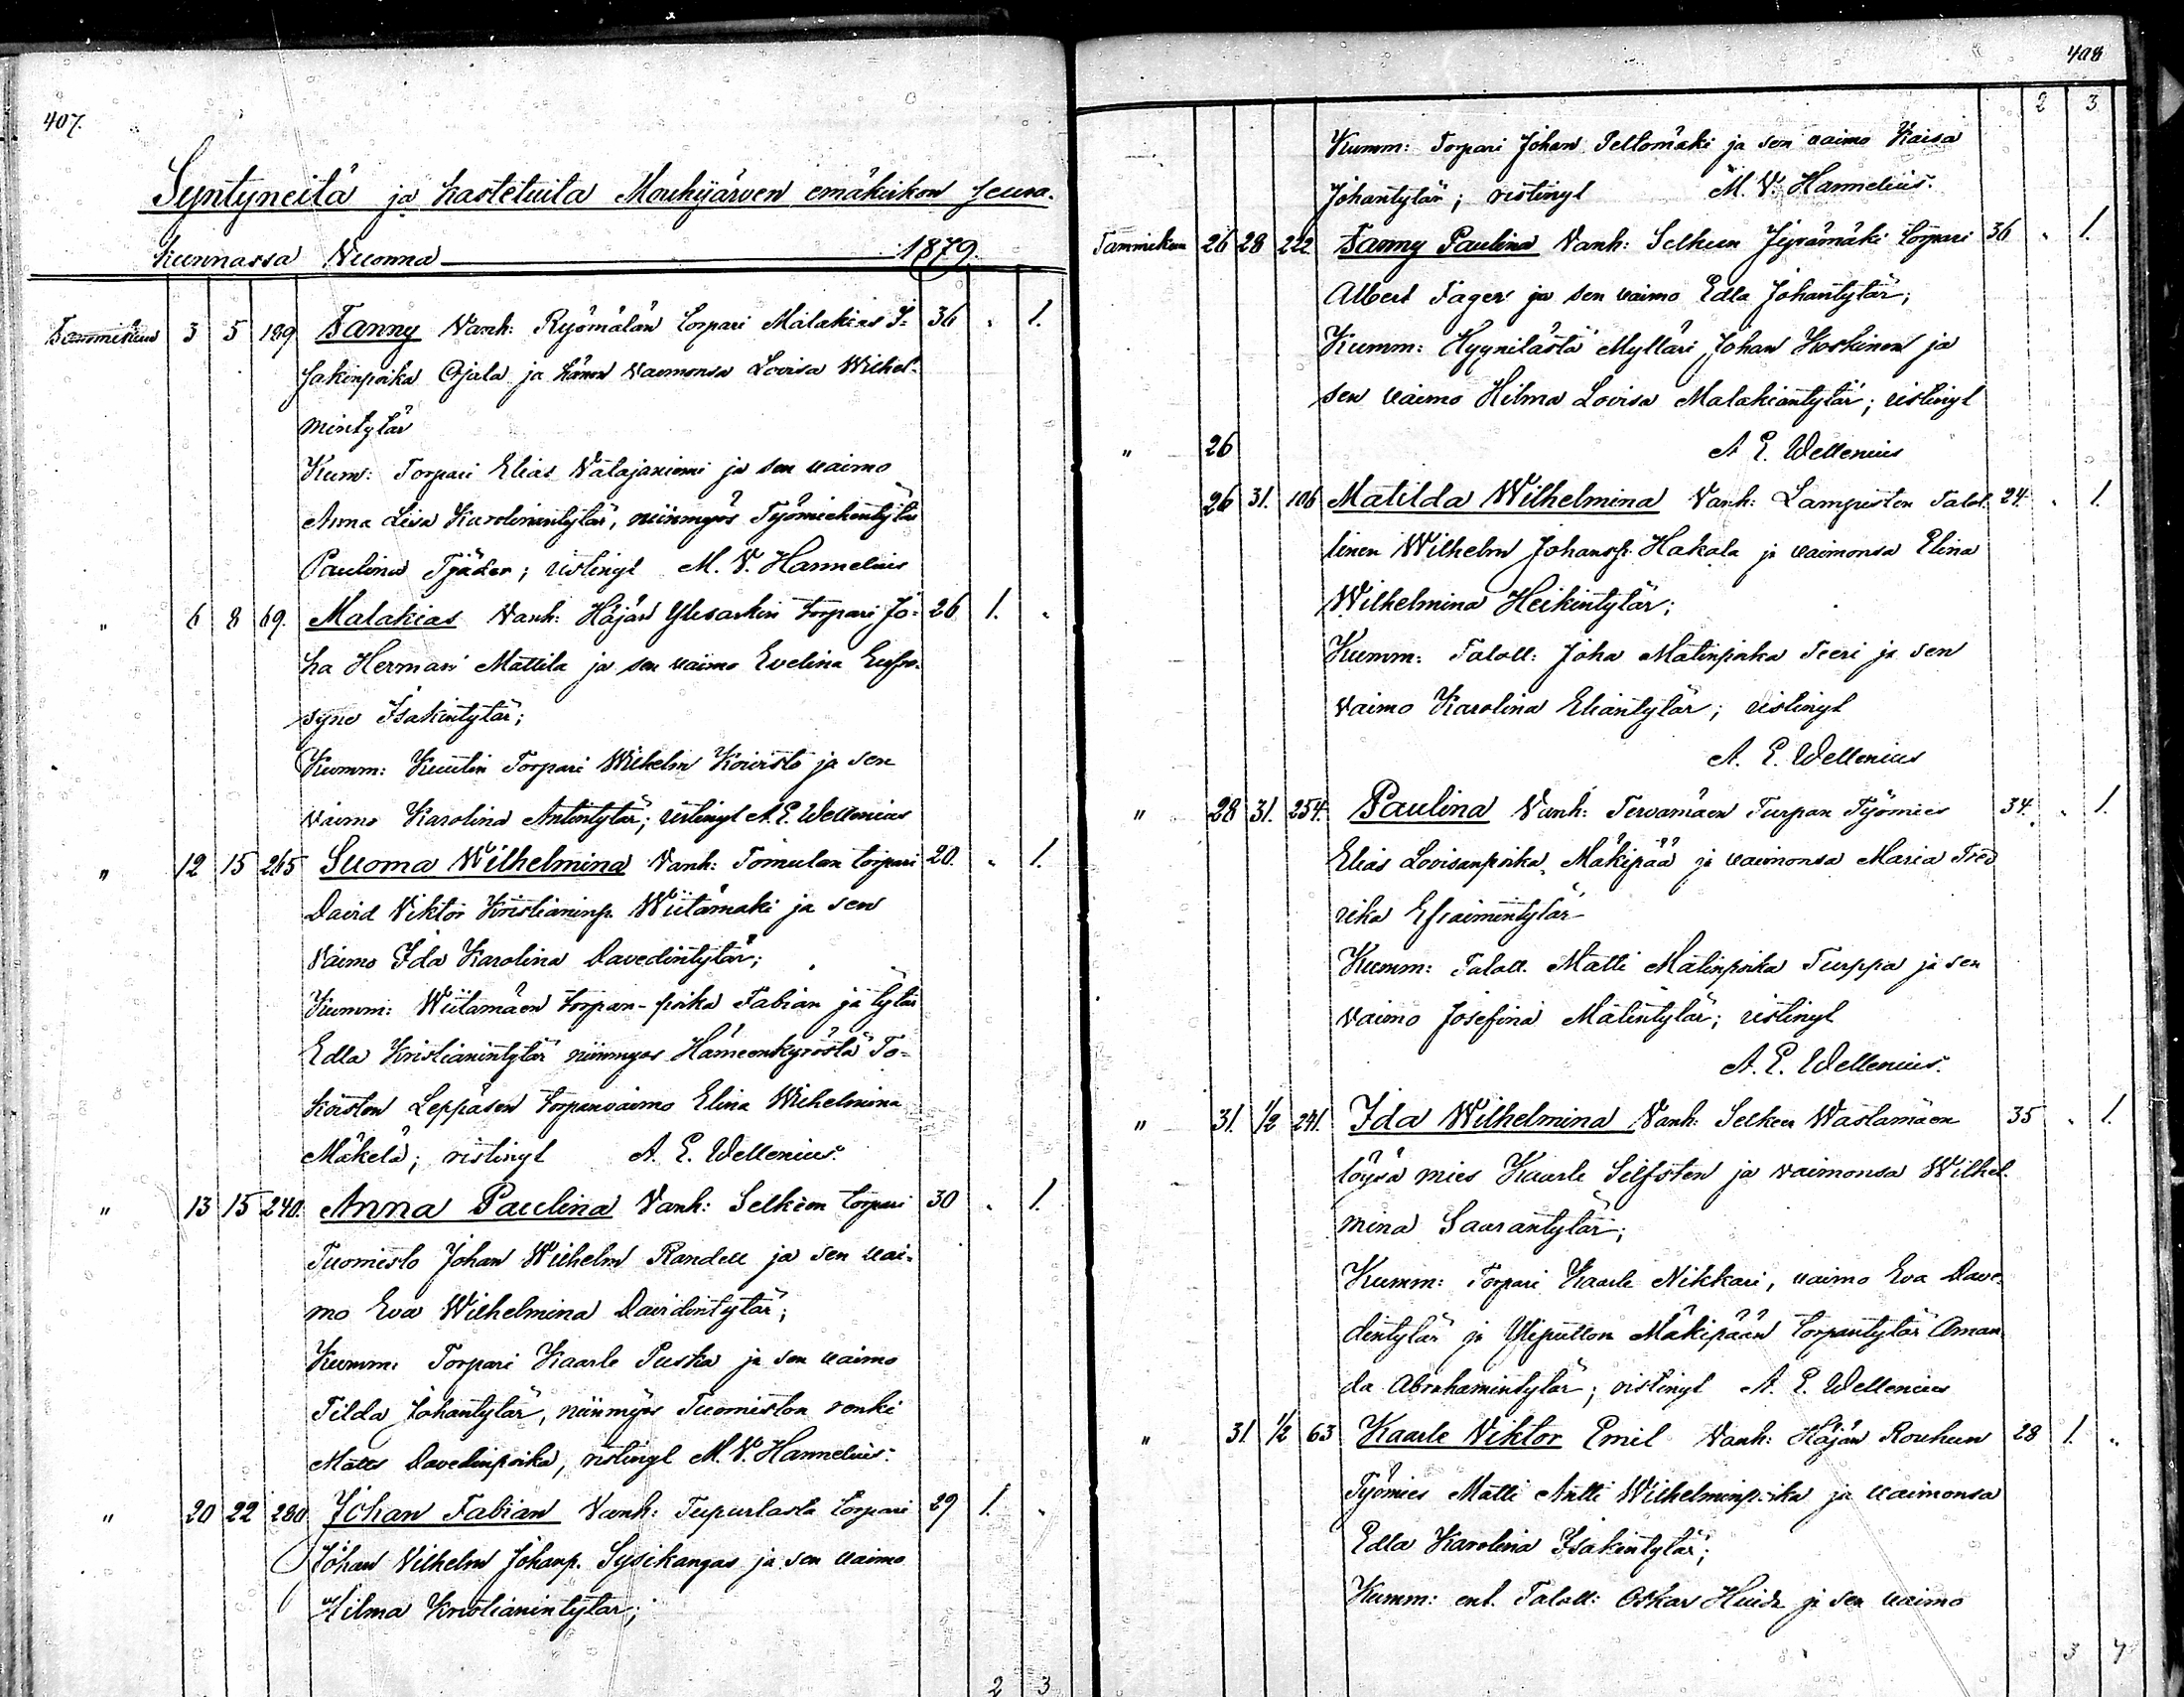 407.
Syntyneitä ja kastetuita Mouhijärven emäkirkon seura-
kunnassa Vuonna 1879.
Tammikuu 3 5 189 Fanny Vanh: Ryömälän torpari Malakias I- 36 " 1.
sakinpoika Ojala ja hänen vaimonsa Lovisa Wilhel-
mintytär
Kum: Torpari Elias Vatajaniemi ja sen vaimo
Anna Lisa Karolinantytär, niinmyös Työmiehentytär
Paulina Tjäder; ristinyt M. V. Hannelius
" 6 8 69. Malakias Vanh: Häijän Ylisarkin torpari Jo- 26 1. "
ha Herman Mattila ja sen vaimo Evelina Eufro-
syne Isakintytär;
Kumm: Kuulin Torpari Wilhelm Koivisto ja sen
vaimo Karolina Antintytär; ristinyt A. E. Wellenius
" 12 15 265 Suoma Wilhelmina Vanh: Tomulan torpari 20. " 1.
David Viktor Kristianinp. Wiitamäki ja sen
vaimo Ida Karolina Davedintytär;
Kumm: Wiitamäen torpan-poika Fabian ja tytär
Edla Kristianintytär niinmyös Hämeenkyröstä To-
koiston Leppäsen torpanvaimo Elina Wilhelmina
Mäkelä; ristinyt A. E. Wellenius.
" 13 15 240. Anna Paulina Vanh: Selkeen torpari 30 " 1.
Tuomisto Johan Wilhelm Randell ja sen vai-
mo Eva Wilhelmina Davidintytär;
Kumm: Torpari Kaarle Puska ja sen vaimo
Tilda Johantytär, niinmyös Tuomiston renki
Matts Davedinpoika, ristinyt M. V. Hannelius.
" 20 22 280 Johan Fabian Vanh: Tupurlasta torpari 29 1. "
Johan Vilhelm Johanp. Sysikangas ja sen vaimo
Hilma Kristianintytär;
2 3
408
2 3
Kumm: Torpari Johan Peltomäki ja sen vaimo Kaisa
Johantytär; ristinyt M. V. Hannelius.
Tammikuu 26 28 222 Fanny Paulina Vanh: Selkeen Jyrämäki torpari 36 " 1.
Albert Fager ja sen vaimo Edla Johantytär;
Kumm: Hyynilästä Mylläri Johan Koskinen ja
sen vaimo Hilma Lovisa Malakiantytär; ristinyt
" 26 A E. Wellenius
26 31. 106 Matilda Wilhelmina Vanh: Lampisten Talol- 24. " 1.
linen Wilhelm Johansp. Hakala ja vaimonsa Elina
Wilhelmina Heikintytär;
Kumm: Taloll: Joha Matinpoika Teeri ja sen
vaimo Karolina Eliantytär; ristinyt
A. E. Wellenius
" 28 31. 254. Paulina Vanh: Tervamäen Turpan Työmies 34. " 1.
Elias Lovisanpoika Mäkipää ja vaimonsa Maria Fred
rika Efraimintytär
Kumm: Taloll. Matti Matinpoika Turppa ja sen
vaimo Josefina Matintytär; ristinyt
A. E. Wellenius.
" 31. 1/2 241. Ida Wilhelmina Vanh: Selkeen Wastamäen 35 " 1.
löysä mies Kaarle Silfsten ja vaimonsa Wilhel-
mina Saurantytär;
Kumm: Torpari Kaarle Nikkari, vaimo Eva Dave-
dintytär ja Ylipullon Mäkipään torpantytär Aman
da Abrahamintytär; ristinyt A. E. Wellenius
" 31. 1/2 63 Kaarle Viktor Emil Vanh: Häijän Rouhun 28 1. "
Työmies Matti Antti Wilhelminpoika ja vaimonsa
Edla Karolina Isakintytär;
Kumm: ent. Taloll: Oskar Huida ja sen vaimo
3 7